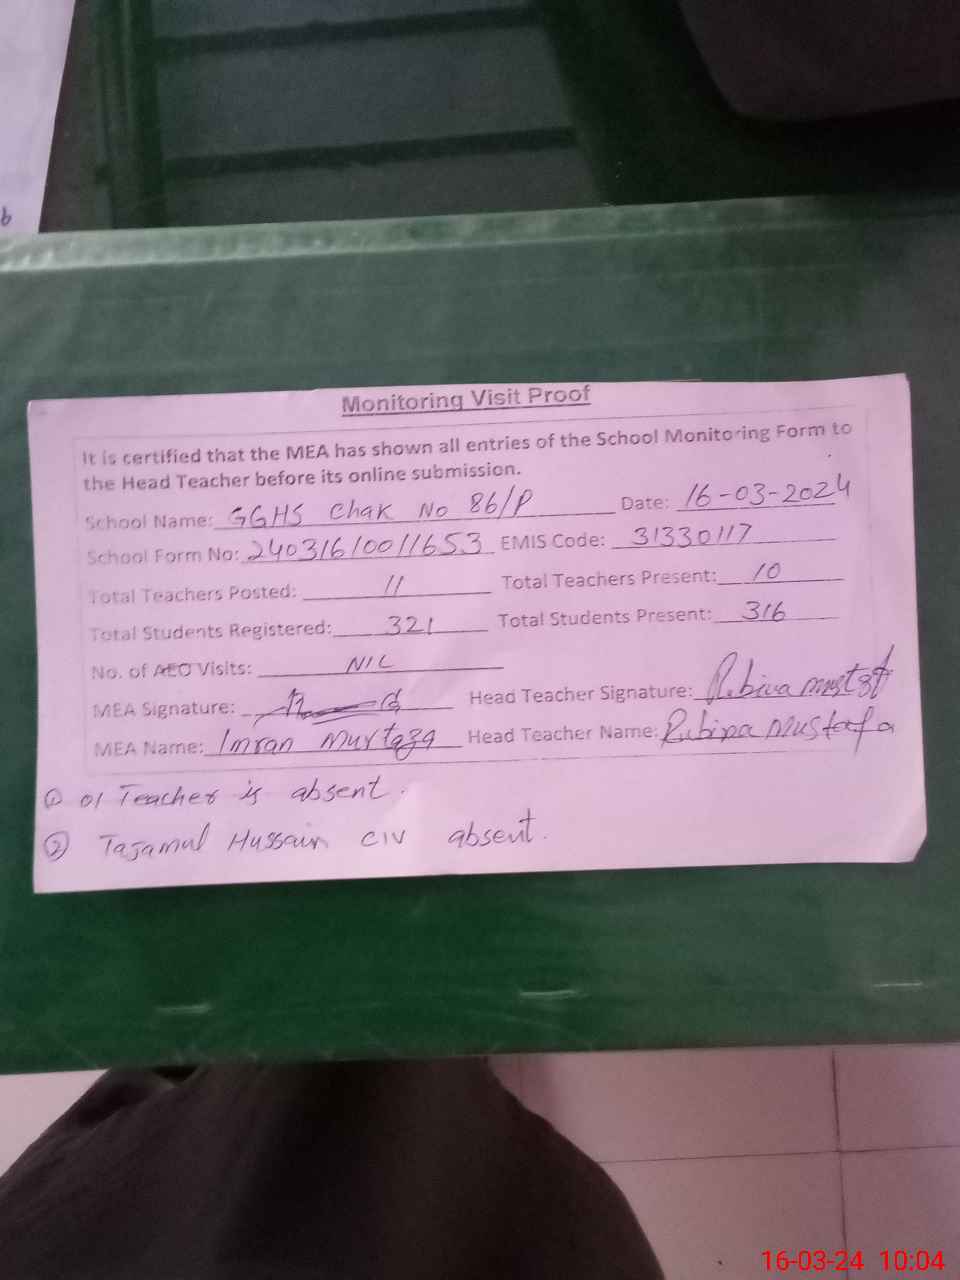 6
Monitoring Visit Proof
It is certified that the MEA has shown all entries of the School Monitoring Form to
the Head Teacher before its online submission.
School Name: GGHS Chak No 86/P Date: 16-03-2024
School Form No: 24031610011653 EMIS Code: 31330117
Total Teachers Posted: 11 Total Teachers Present: 10
Total Students Registered: 321 Total Students Present: 316
No. of AEO Visits: NIL
MEA Signature: Head Teacher Signature: Rubina Mustaf
MEA Name: Imran Murtaza Head Teacher Name: Rubina Mustafa
① 01 Teacher is absent.
② Tajamul Hussain CIV absent.
16-03-24 10:04